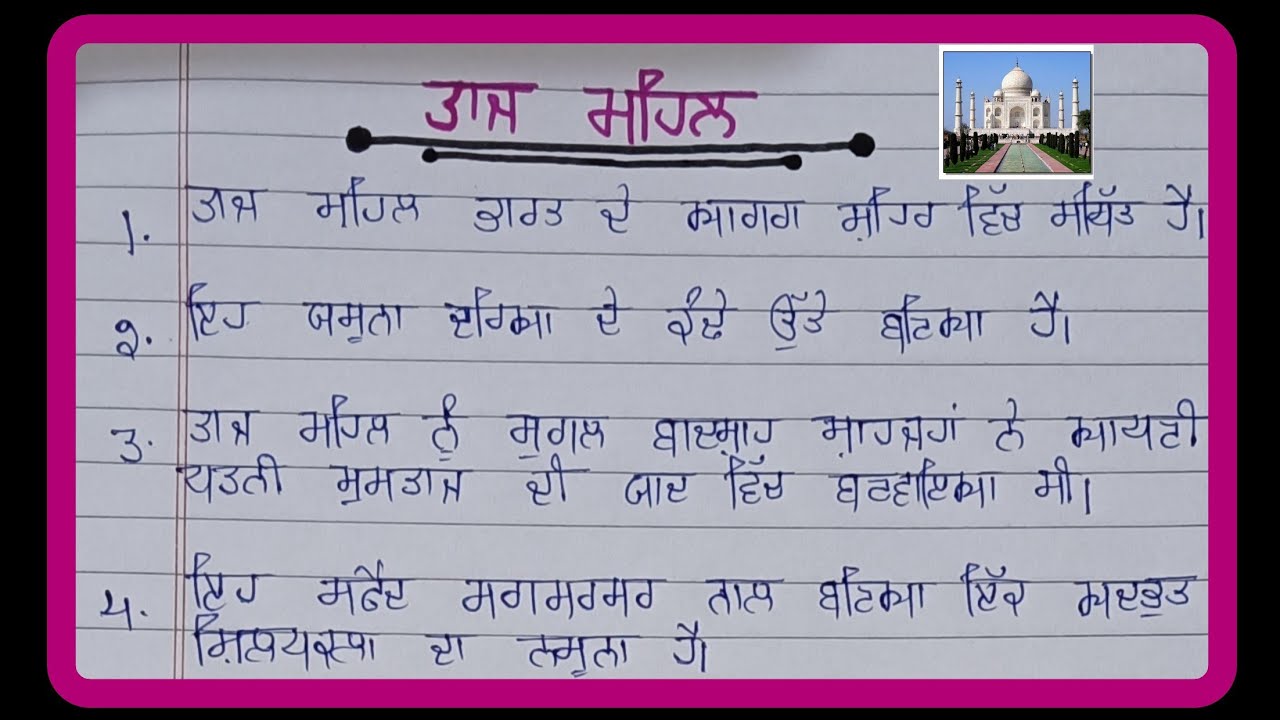 ਤਾਜ ਮਹਿਲ
1. ਤਾਜ ਮਹਿਲ ਭਾਰਤ ਦੇ ਆਗਰਾ ਸ਼ਹਿਰ ਵਿੱਚ ਸਥਿੱਤ ਹੈ।
੨. ਇਹ ਜਮੁਨਾ ਦਰਿਆ ਦੇ ਕੰਢੇ ਉੱਤੇ ਬਣਿਆ ਹੈ।
੩. ਤਾਜ ਮਹਿਲ ਨੂੰ ਮੁਗਲ ਬਾਦਸ਼ਾਹ ਸ਼ਾਹਜਹਾਂ ਨੇ ਆਪਣੀ
ਪਤਨੀ ਮੁਮਤਾਜ ਦੀ ਯਾਦ ਵਿੱਚ ਬਣਵਾਇਆ ਸੀ।
੪. ਇਹ ਸਫੈਦ ਸਗਮਰਮਰ ਨਾਲ ਬਣਿਆ ਇੱਕ ਅਦਭੁਤ
ਸ਼ਿਲਪਕਲਾ ਦਾ ਨਮੂਨਾ ਹੈ।